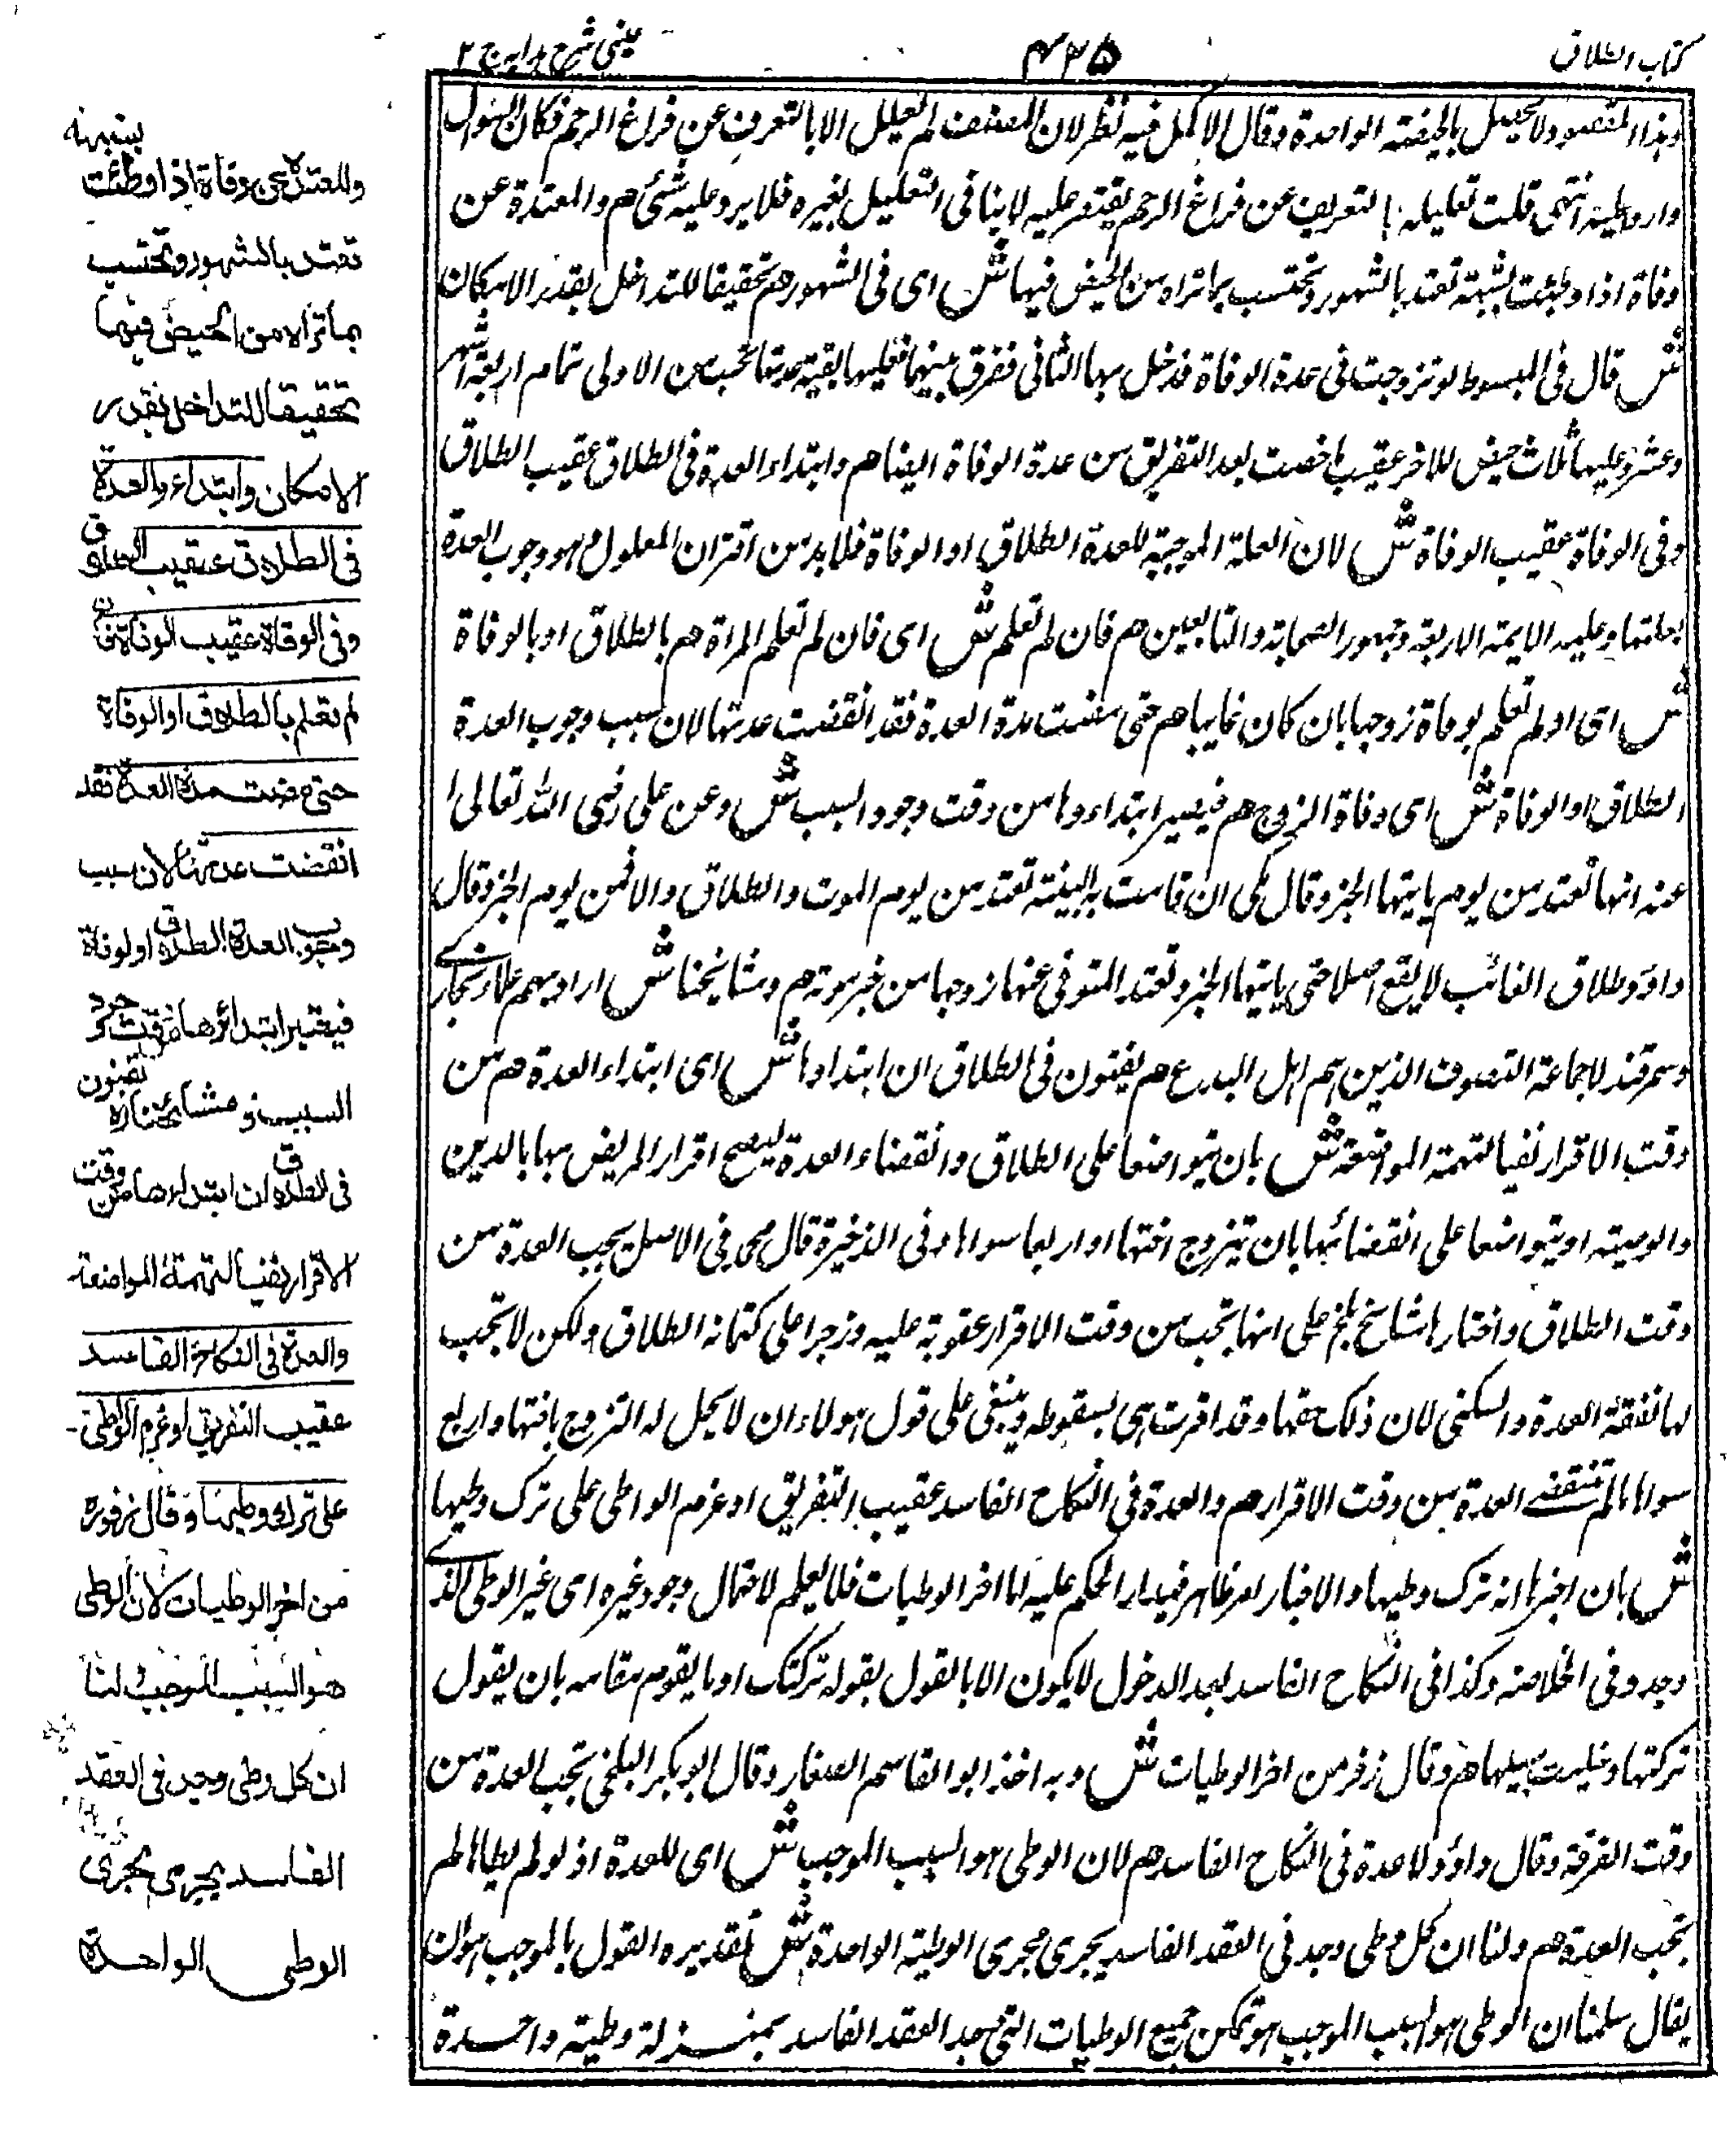 كتاب الطلاق
٤٢٥
عينى شرح هدايه ج ٢
وهذا المقصود لا يحصل بالحيضة الواحدة وقال الاكمل فيه نظر لان المصنف لم يعلل الا بالتعرف عن فراغ الرحم فكان السوال
واردا عليه انتهى قلت تعليله بالتعريف عن فراغ الرحم يقتصر عليه لا ينافى التعليل بغيره فلا يرد عليه شئ هم والمعتدة عن
وفاة اذا وطئت بشبهة تعتد بالشهور وتحتسب بما تراه من الحيض فيها ش اى فى الشهور هم تحقيقا للتداخل بقدر الامكان
ش قال فى المبسوط لو تزوجت فى عدة الوفاة فدخل بها الثانى ففرق بينهما فعليها بقية عدتها تحسب من الاولى تمام اربعة اشهر
وعشر وعليها ثلاث حيض للاخر عقيب ما حاضت بعد التفريق من عدة الوفاة ايضا هم وابتداء العدة فى الطلاق عقيب الطلاق
وفى الوفاة عقيب الوفاة ش لان العلة الموجبة للعدة الطلاق او الوفاة فلا بد من اقتران المعلول هو وجوب العدة
بعلتها وعليه الايمة الاربعة وجمهور الصحابة والتابعين هم فان لم تعلم ش اى فان لم تعلم المراة هم بالطلاق او بالوفاة
ش اى او لم تعلم بوفاة زوجها بان كان غايبا هم حتى مضت مدة العدة فقد انقضت عدتها لان سبب وجوب العدة
الطلاق او الوفاة ش اى وفاة الزوج هم فيصير ابتداءوها من وقت وجود السبب ش وعن على رضى الله تعالى
عنه انها تعتد من يوم ياتيها الخبر وقال مكى ان قامت به البينة تعتد من يوم الموت والطلاق والا فمن يوم الخبر وقال
داؤد وطلاق الغائب لا يقع اصلا حتى ياتيها الخبر وتعتد المتوفى عنها زوجها من خبر موته هم ومشايخنا ش اراد بهم علماء بخارى
وسمرقند لا جماعة التصوف الذين هم اهل البدع هم يفتون فى الطلاق ان ابتداءها ش اى ابتداء العدة هم من
وقت الاقرار نفيا لتهمة المواضعة ش بان يتواضعا على الطلاق وانقضاء العدة ليصح اقرار المريض بها بالدين
والوصية او يتواضعا على انقضائها بان يتزوج اختها او اربعا سواها وفى الذخيرة قال محمد فى الاصل يجب العدة من
وقت الطلاق واختار مشايخ بلخ على انها تجب من وقت الاقرار عقوبة عليه وزجرا على كتمانه الطلاق ولكن لا تجب
لها نفقة العدة والسكنى لان ذلك حقها وقد اقرت هى بسقوطه وينبغى على قول هولاء ان لا يحل له التزوج باختها واربع
سواها ما لم تنقضى العدة من وقت الاقرار هم والعدة فى النكاح الفاسد عقيب التفريق او عزم الواطى على ترك وطيها
ش بان اخبرها انه ترك وطيها والاخبار امر ظاهر فيدار الحكم عليه اما اخر الوطيات فلا يعلم لاحتمال وجود غيره اى غير الوطى الذى
وجد وفى الخلاصة وكذا فى النكاح الفاسد بعد الدخول لا يكون الا بالقول بقوله تركتك او ما يقوم مقامه بان يقول
تركتها وخليت سبيلها هم وقال زفر من اخر الوطيات ش وبه اخذ ابو القاسم الصفار وقال ابو بكر البلخى تجب العدة من
وقت الفرقة وقال داؤد لا عدة فى النكاح الفاسد هم لان الوطى هو السبب الموجب ش اى للعدة اذ لو لم يطاها لم
تجب العدة هم ولنا ان كل وطى وجد فى العقد الفاسد يجرى مجرى الوطية الواحدة ش تقديره القول بالموجب هو ان
يقال سلمنا ان الوطى هو السبب الموجب هو تمكن جميع الوطيات التى بعد العقد الفاسد بمنزلة وطية واحدة
والمعتدة عن وفاة اذا وطئت بشبهة
تعتد بالشهور وتحتسب
بما تراه من الحيض فيها
تحقيقا للتداخل بقدر
الامكان وابتداء العدة
فى الطلاق عقيب الطلاق
وفى الوفاة عقيب الوفاة فان
لم تعلم بالطلاق او الوفاة
حتى مضت مدة العدة فقد
انقضت عدتها لان سبب
وجوب العدة الطلاق او الوفاة
فيعتبر ابتداؤها من وقت وجود
السبب ومشايخنا يفتون
فى الطلاق ان ابتداءها من وقت
الاقرار نفيا لتهمة المواضعة
والعدة فى النكاح الفاسد
عقيب التفريق او عزم الواطى
على ترك وطيها وقال زفر
من اخر الوطيات لان الوطى
هو السبب الموجب ولنا
ان كل وطى وجد فى العقد
الفاسد يجرى مجرى
الوطى الواحدة